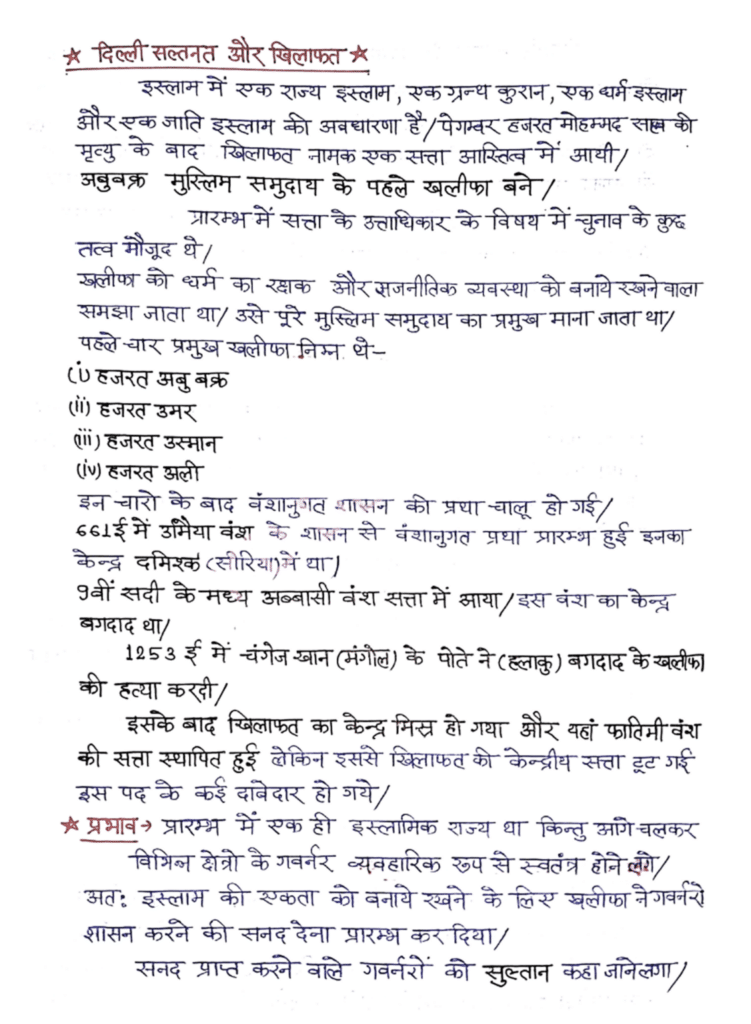 ★ दिल्ली सल्तनत और खिलाफत ★
इस्लाम में एक राज्य इस्लाम, एक ग्रन्थ कुरान, एक धर्म इस्लाम
और एक जाति इस्लाम की अवधारणा है/ पेगम्बर हजरत मोहम्मद साहब की
मृत्यु के बाद खिलाफत नामक एक सत्ता आस्तित्व में आयी/
अबुबक्र मुस्लिम समुदाय के पहले खलीफा बने/
प्रारम्भ में सत्ता के उत्ताधिकार के विषय में चुनाव के कुछ
तत्व मौजूद थे/
खलीफा को धर्म का रक्षक और राजनीतिक व्यवस्था को बनाये रखने वाला
समझा जाता था/ उसे पूरे मुस्लिम समुदाय का प्रमुख माना जाता था/
पहले चार प्रमुख खलीफा निम्न थे-
(i) हजरत अबु बक्र
(ii) हजरत उमर
(iii) हजरत उस्मान
(iv) हजरत अली
इन चारो के बाद वंशानुगत शासन की प्रथा चालू हो गई/
661ई में उमैया वंश के शासन से वंशानुगत प्रथा प्रारम्भ हुई इनका
केन्द्र दमिश्क (सीरिया) में था/
9वीं सदी के मध्य अब्बासी वंश सत्ता में आया/ इस वंश का केन्द्र
बगदाद था/
1253 ई में चंगेज खान (मंगोल) के पोते ने (हलाकु) बगदाद के खलीफा
की हत्या करदी/
इसके बाद खिलाफत का केन्द्र मिस्र हो गया और यहां फातिमी वंश
की सत्ता स्थापित हुई लेकिन इससे खिलाफत की केन्द्रीय सत्ता टूट गई
इस पद के कई दावेदार हो गये/
★ प्रभाव → प्रारम्भ में एक ही इस्लामिक राज्य था किन्तु आगे चलकर
विभिन्न क्षेत्रो के गवर्नर व्यवहारिक रूप से स्वतंत्र होने लगे/
अतः इस्लाम की एकता को बनाये रखने के लिए खलीफा ने गवर्नरो
शासन करने की सनद देना प्रारम्भ कर दिया/
सनद प्राप्त करने वाले गवर्नरों को सुल्तान कहा जाने लगा/